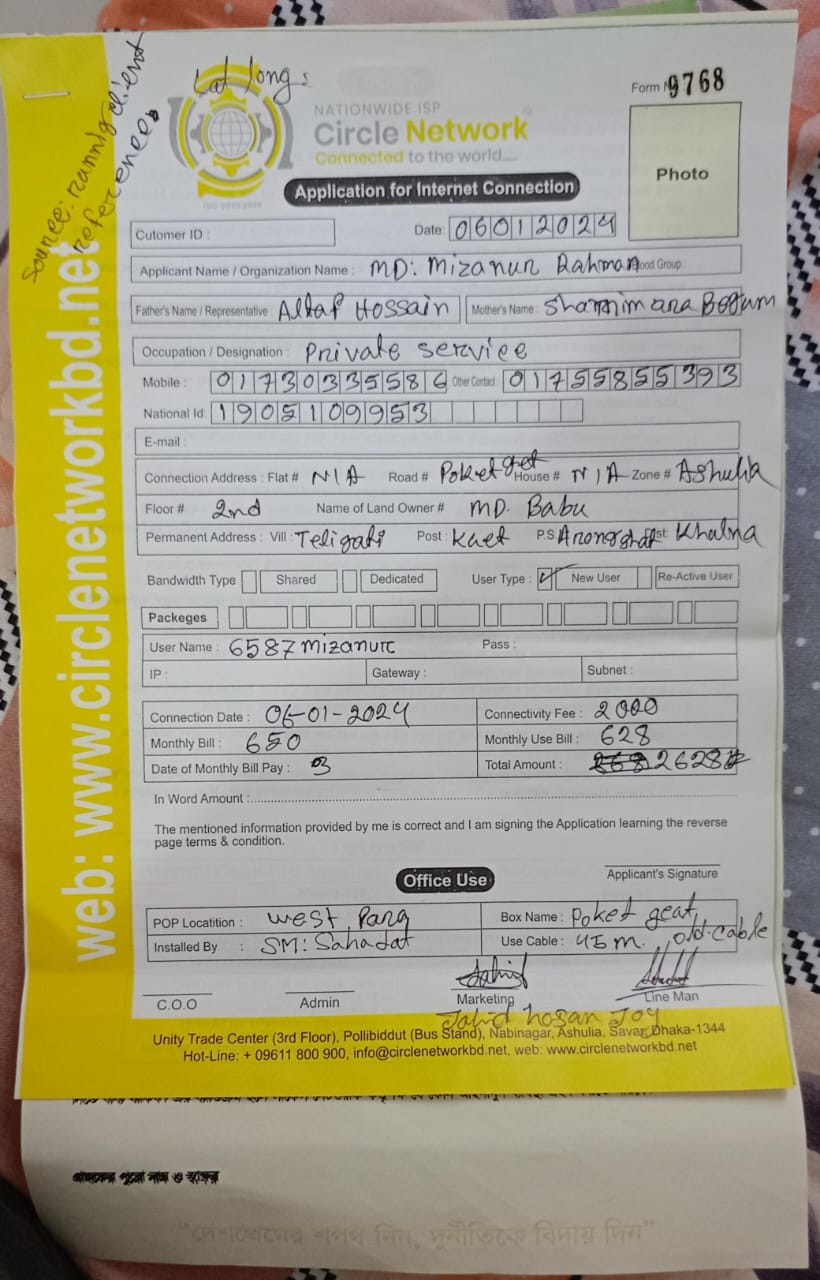 Lat long:
Source: running client reference
web: www.circlenetworkbd.net
Form N 9768
NATIONWIDE ISP
Circle Network
Connected to the world....
ISO 9001:2015
Photo
Application for Internet Connection
Cutomer ID : Date: 06012024
Applicant Name / Organization Name : MD: Mizanur Rahman ood Group :
Father's Name / Representative : Altaf Hossain Mother's Name : Shammimara Begum
Occupation / Designation : Private service
Mobile : 01730335586 Other Contact : 01755855393
National Id: 1905109953
E-mail :
Connection Address : Flat # N/A Road # Poket get House # N/A Zone # Ashulia
Floor # 2nd Name of Land Owner # MD. Babu
Permanent Address : Vill : Teligati Post : Kuet P.S Arongghat st: Khulna
Bandwidth Type Shared Dedicated User Type : ✓ New User Re-Active User
Packeges
User Name : 6587mizanur Pass :
IP : Gateway : Subnet :
Connection Date : 06-01-2024 Connectivity Fee : 2000
Monthly Bill : 650 Monthly Use Bill : 628
Date of Monthly Bill Pay : 3 Total Amount : 2628
In Word Amount :
The mentioned information provided by me is correct and I am signing the Application learning the reverse
page terms & condition.
Applicant's Signature
Office Use
POP Locatition : west Para Box Name : Poket geat
Installed By : SM: Sahadat Use Cable : 45 m. old-cable
C.O.O Admin Marketing Line Man
Jahid hosan Joy
Unity Trade Center (3rd Floor), Pollibiddut (Bus Stand), Nabinagar, Ashulia, Savar, Dhaka-1344
Hot-Line: + 09611 800 900, info@circlenetworkbd.net, web: www.circlenetworkbd.net
"দেশপ্রেমের শপথ নিন, দুর্নীতিকে বিদায় দিন"